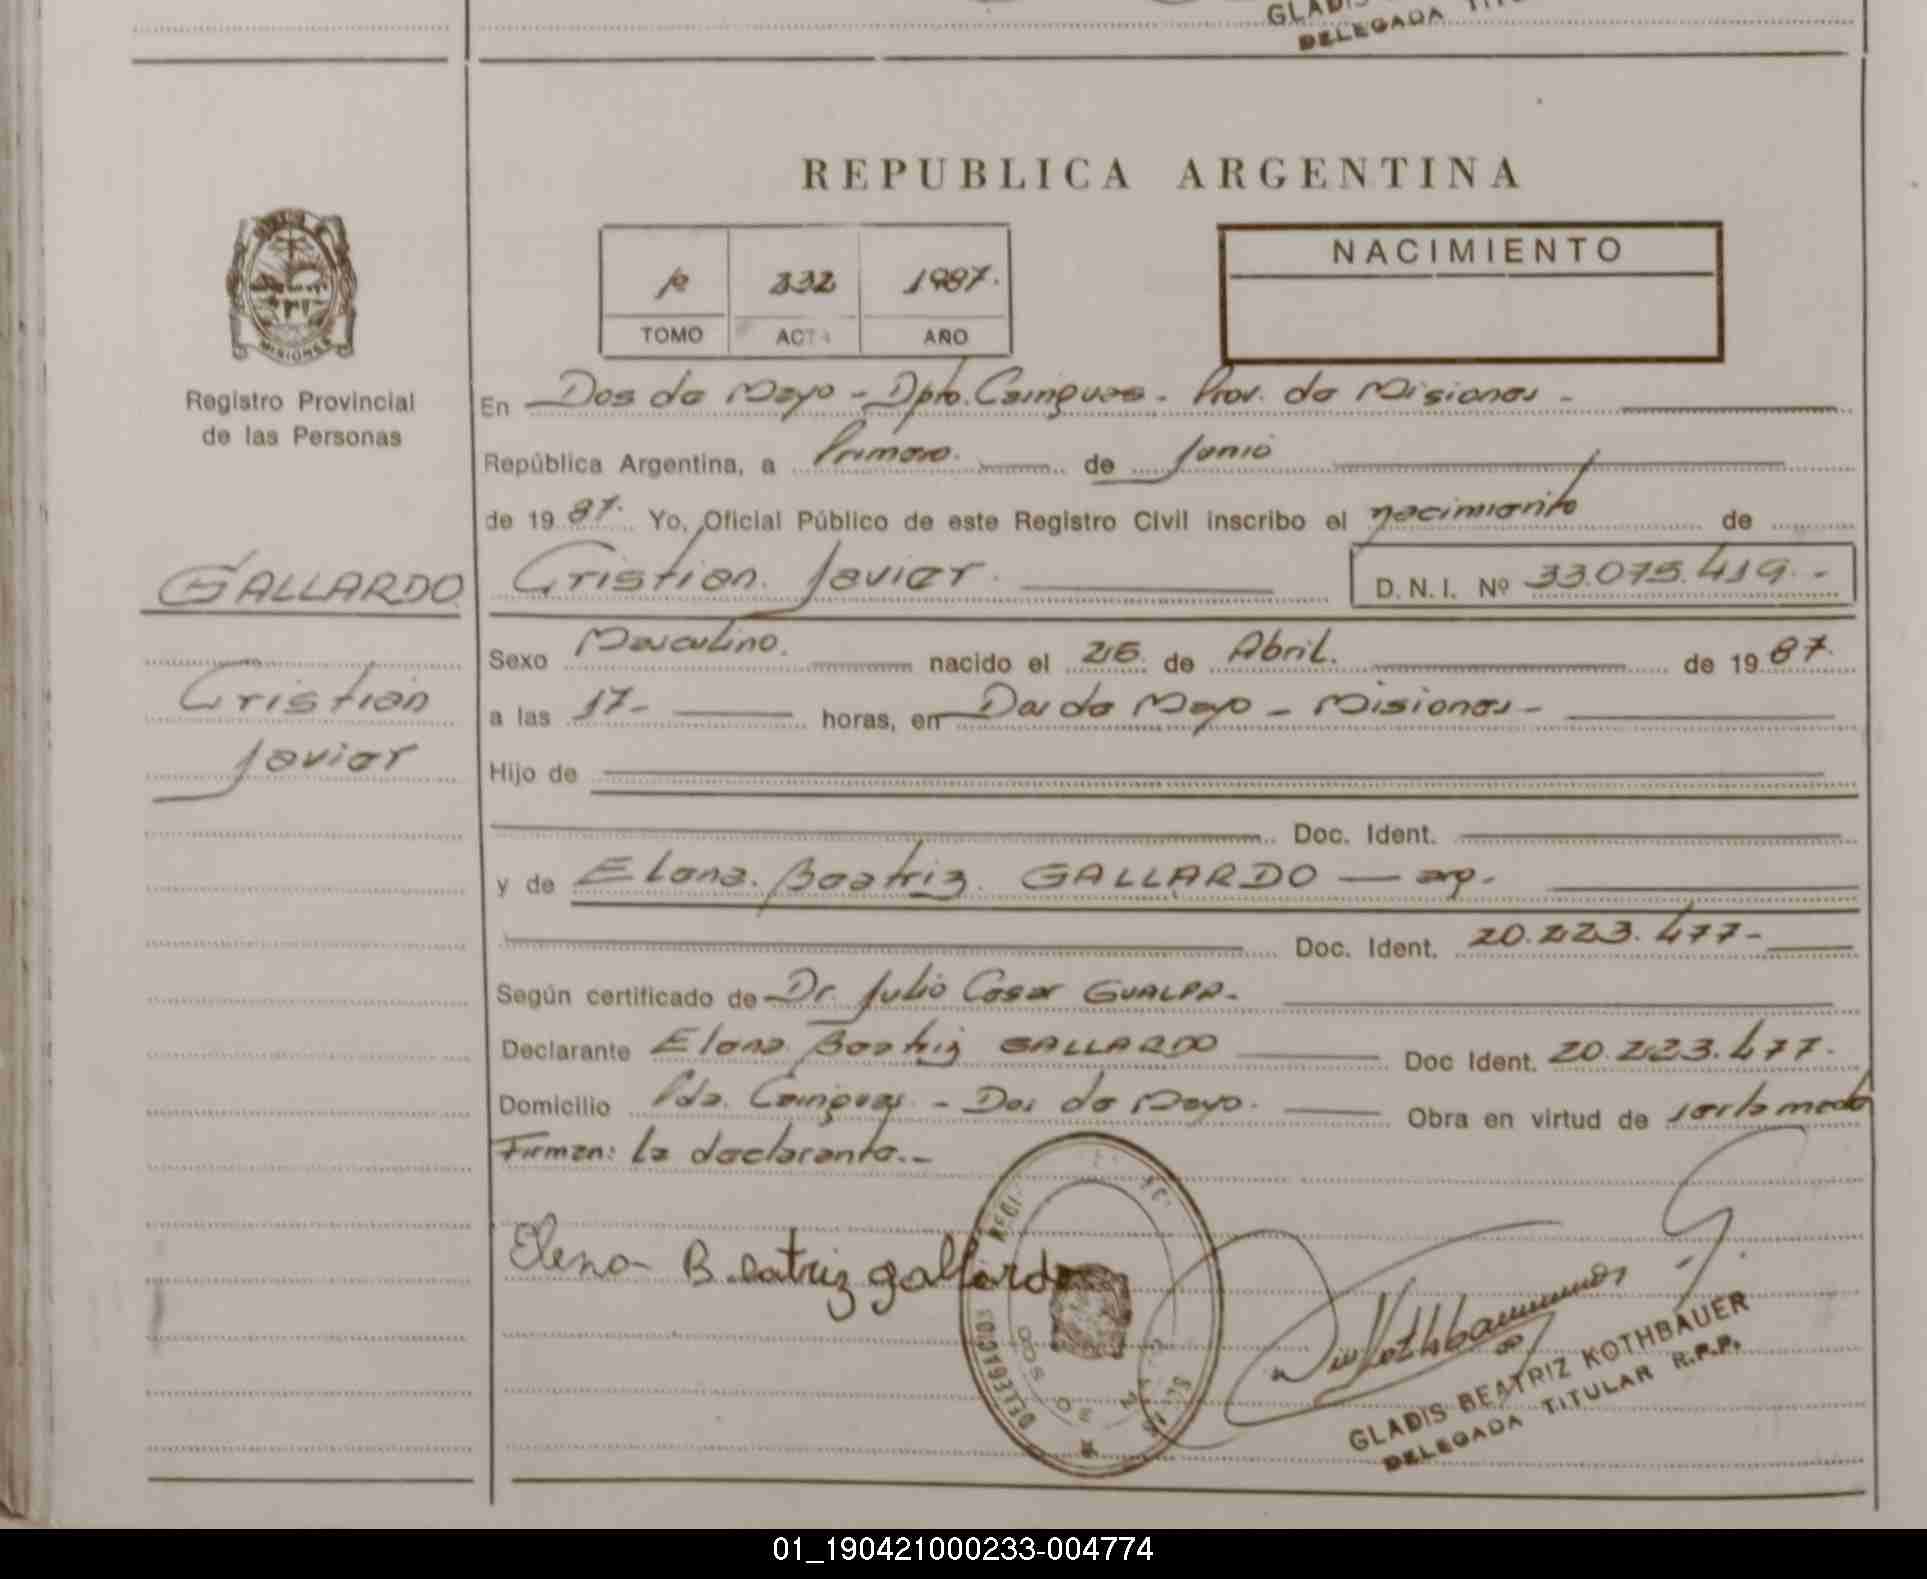 GLADIS
DELEGADA TITU
REPUBLICA ARGENTINA
NACIMIENTO
1º 332 1987.
TOMO ACTA AÑO
MISIONES
Registro Provincial
de las Personas
En Dos de Mayo - Dpto. Cainguas - Prov. de Misiones -
República Argentina, a Primero. de Junio
de 19 87. Yo, Oficial Público de este Registro Civil inscribo el nacimiento de
GALLARDO
Cristian
Javier
Cristian Javier. D.N.I. Nº 33.075.419.-
Sexo Masculino. nacido el 26 de Abril. de 19 87.
a las 17- horas, en Dos de Mayo - Misiones -
Hijo de
Doc. Ident.
y de Elena Beatriz GALLARDO — arg.
Doc. Ident. 20.223.477-
Según certificado de Dr. Julio Cesar GUALPA-
Declarante Elena Beatriz GALLARDO Doc Ident. 20.223.477.
Domicilio Pda. Cainguas - Dos de Mayo. Obra en virtud de serlo madre
Firman: La declarante.-
Elena Beatriz gallardo
GLADIS BEATRIZ KOTHBAUER
DELEGADA TITULAR R.P.P.
01_190421000233-004774